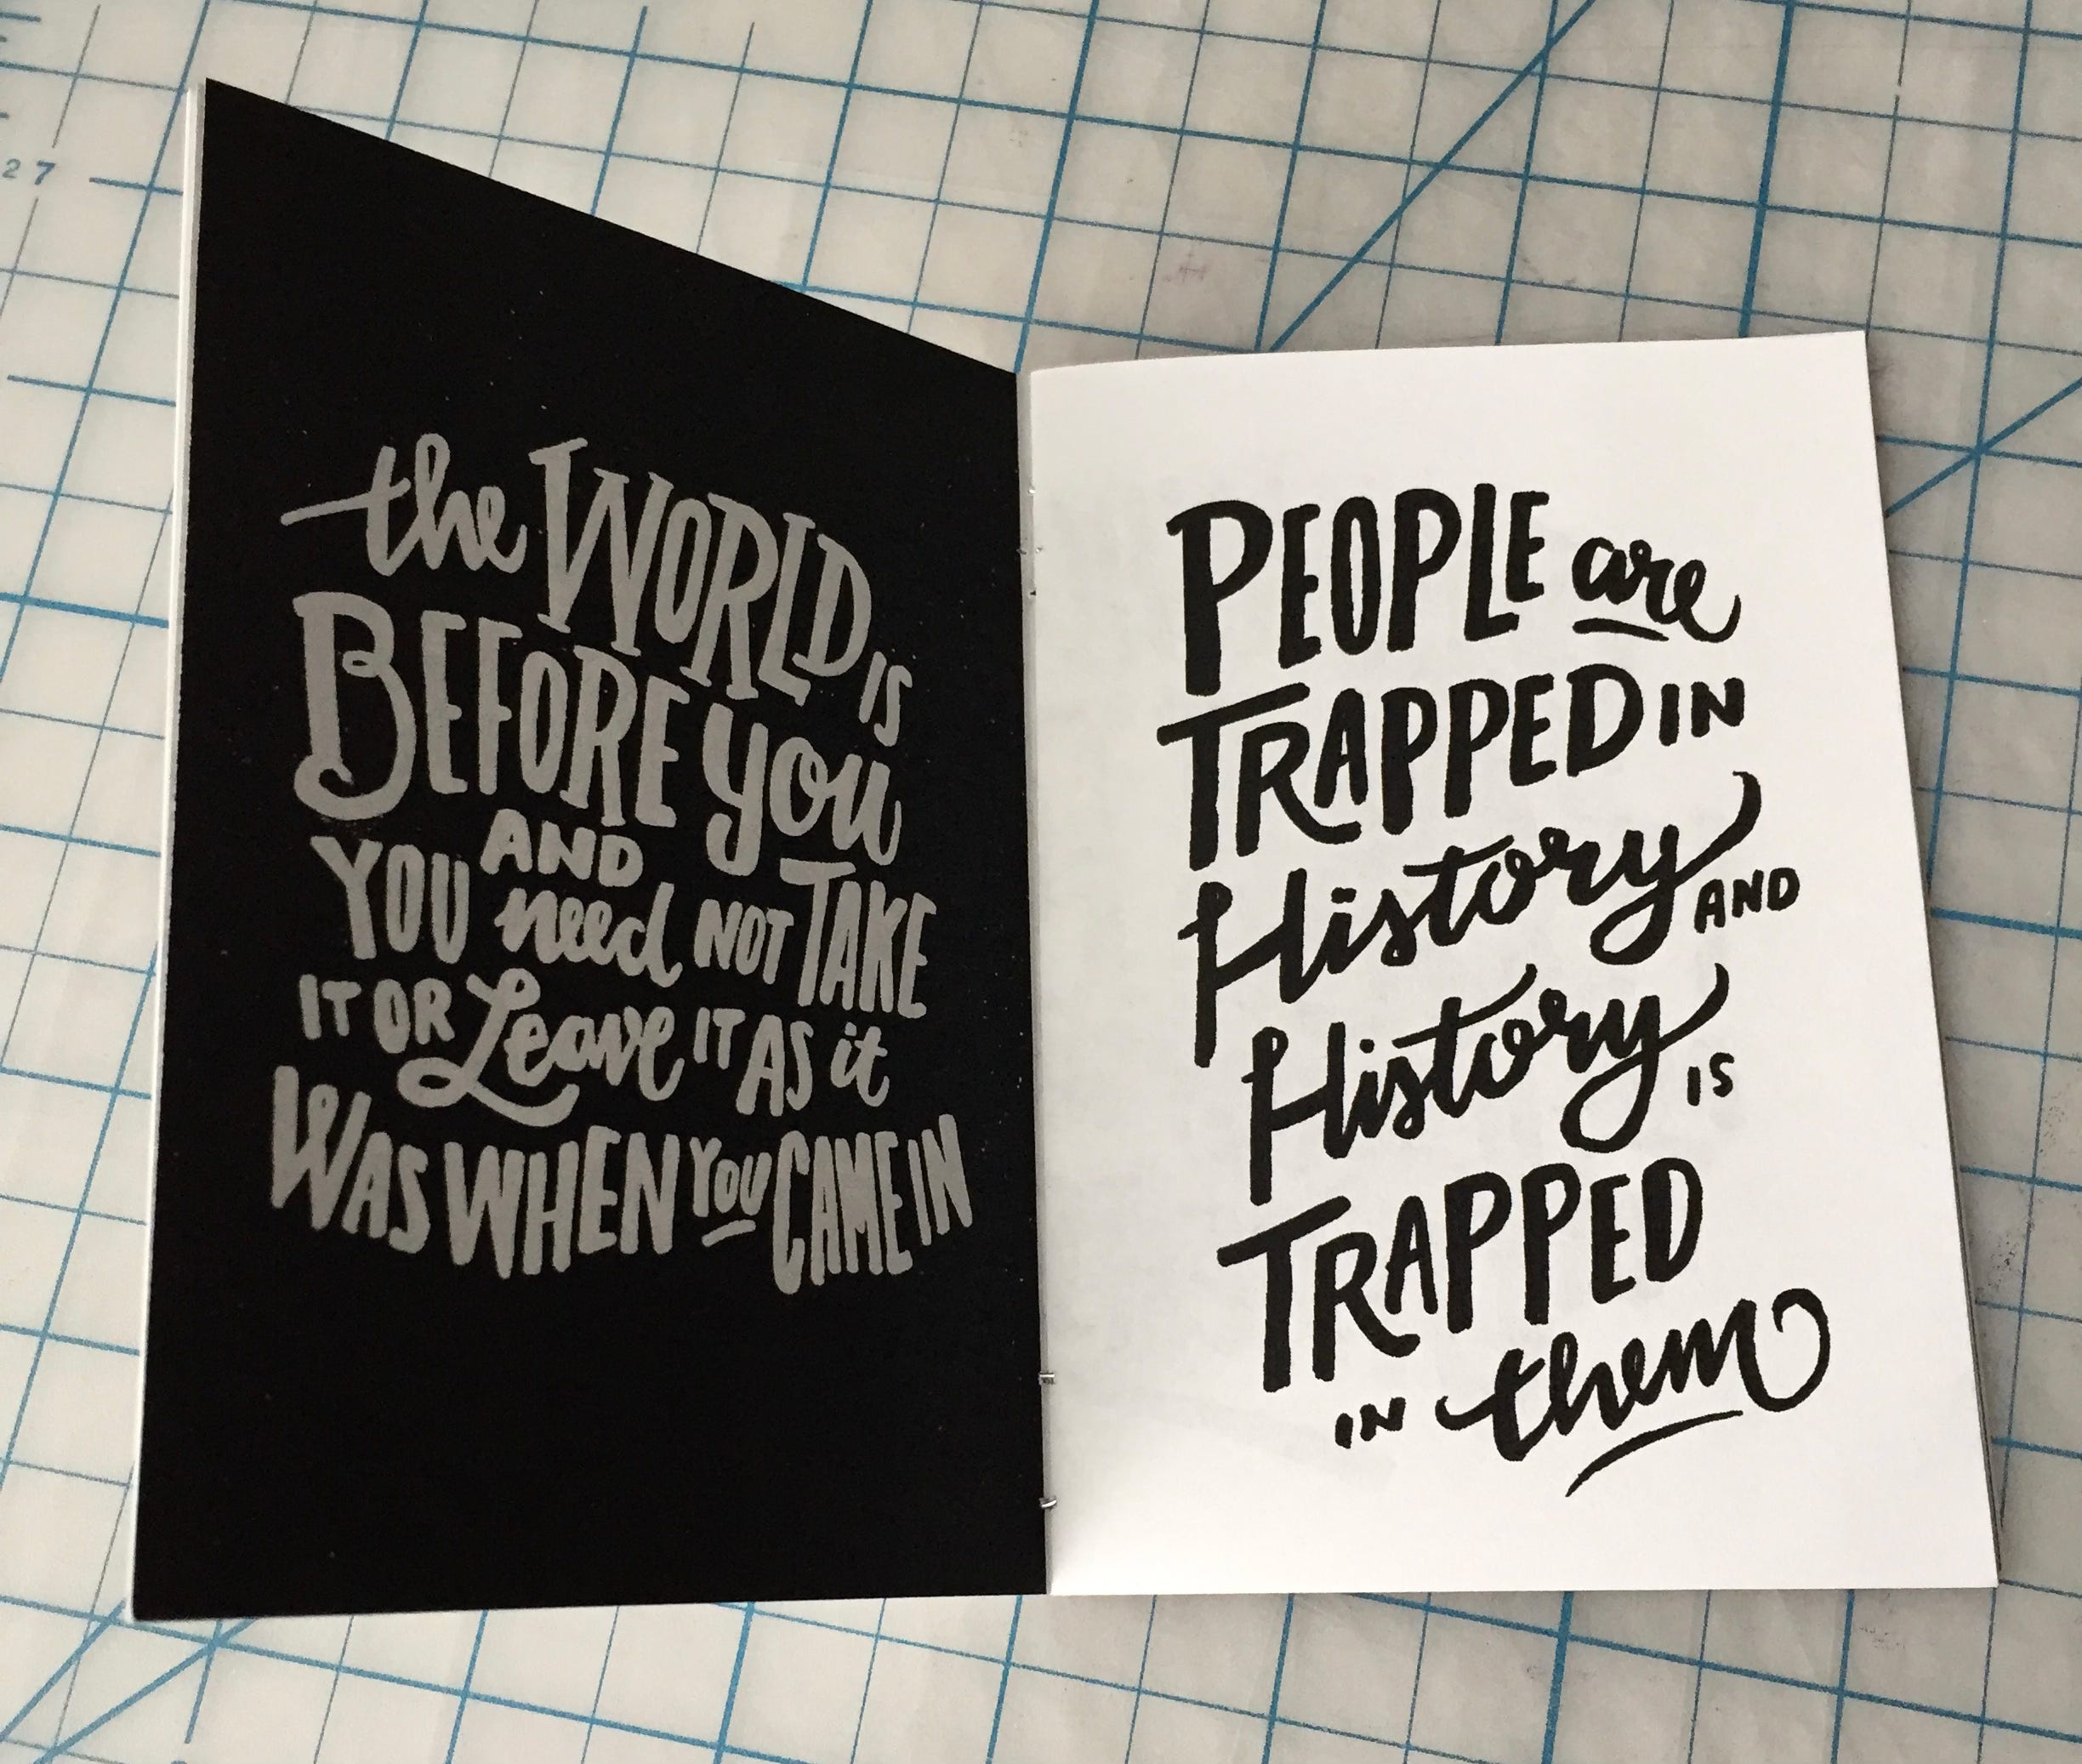 27
the WORLD IS
BEFORE you
AND
YOU need NOT TAKE
IT OR Leave IT AS it
WAS WHEN YOU CAME IN
PEOPLE are
TRAPPED IN
History AND
History IS
TRAPPED
IN them